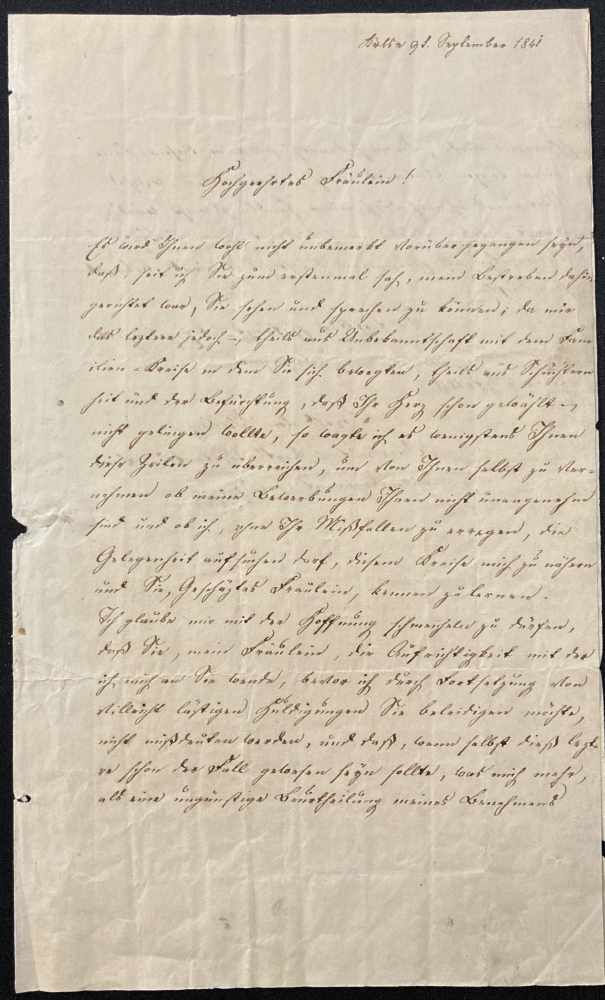 9t. September 1841
Hochgeehrtes Fräulein!
Es wird Ihnen wohl nicht unbemerkt vorüber gegangen seyn,
daß, seit ich Sie zum erstenmal sah, mein Bestreben dahin
gerichtet war, Sie sehen und sprechen zu können; da mir
das leztere jedoch, theils aus Unbekanntschaft mit dem Fam
ilien-Kreise in dem Sie sich bewegten, theils aus Schüchtern
heit und der Befürchtung, daß Ihr Herz schon gewählt
nicht gelingen wollte, so wagte ich es wenigstens Ihnen
diese Zeilen zu überreichen, um von Ihnen selbst zu ver-
nehmen ob meine Bewerbungen Ihnen nicht unangenehm
sind und ob ich, ohne Ihr Mißfallen zu erregen, die
Gelegenheit aufsuchen darf, diesem Kreise mich zu nähern
und Sie, Geschäztes Fräulein, kennen zu lernen.
Ich glaube mir mit der Hoffnung schmeicheln zu dürfen,
daß Sie, mein Fräulein, die Aufrichtigkeit mit der
ich mich an Sie wende, bevor ich durch Fortsetzung von
villeicht lästigen Huldigungen Sie beleidigen möchte,
nicht mißdeuten werden, und daß, wenn selbst dieß lezte-
re schon der Fall gewesen seyn sollte, was mich mehr,
als eine ungünstige Beurtheilung meines Benehmens